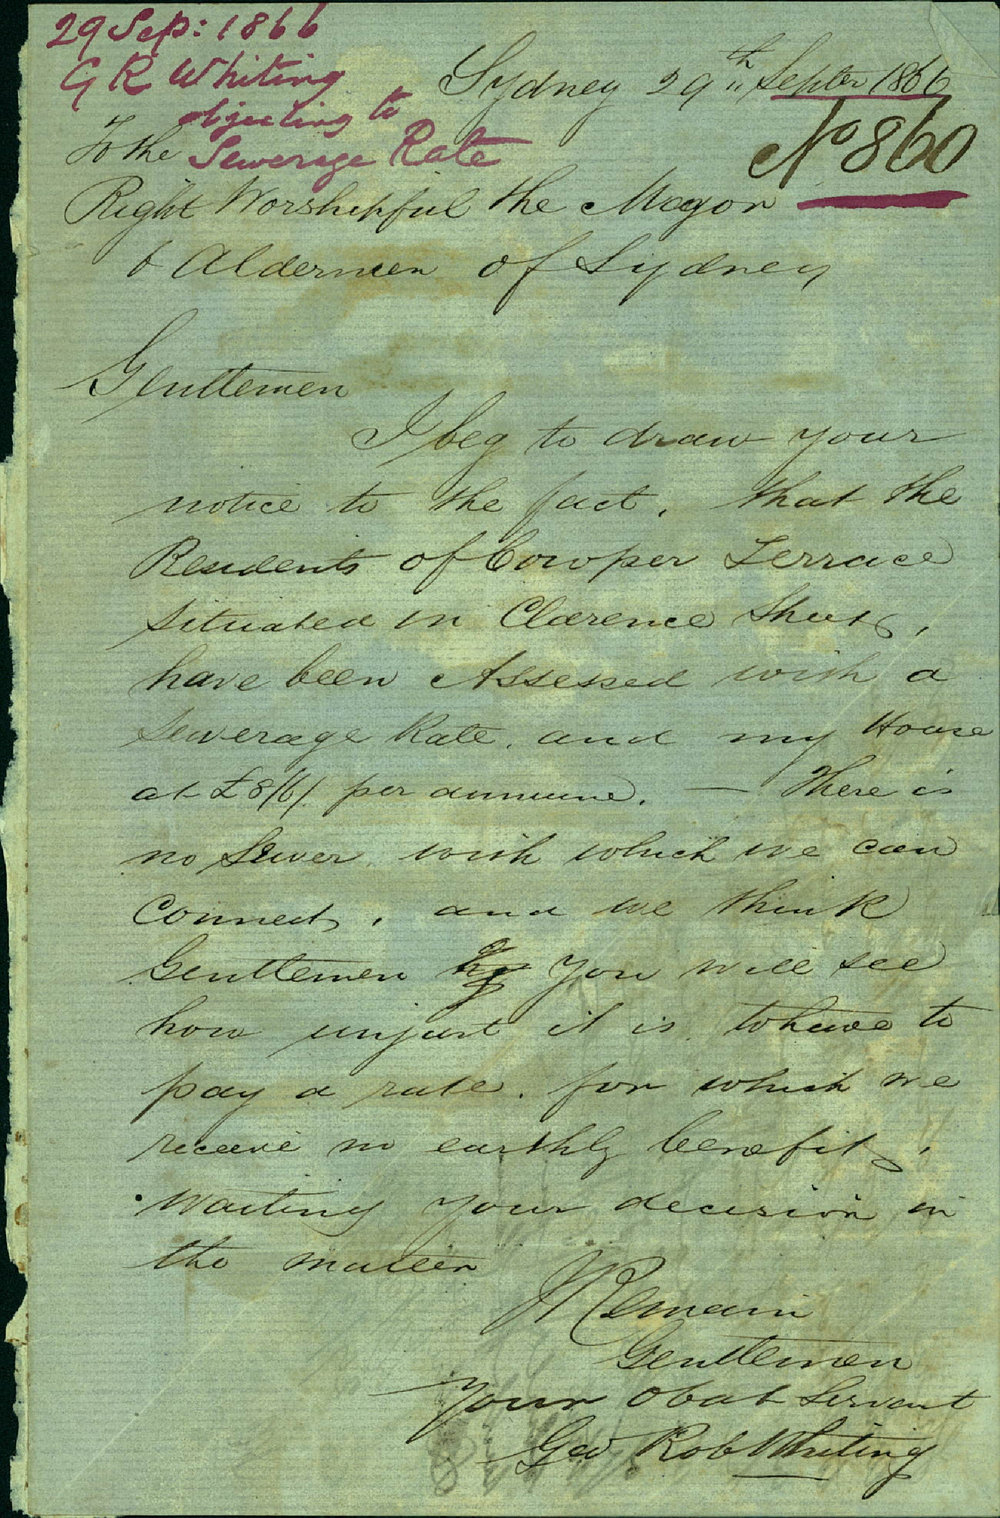 29 Sep: 1866
G R Whiting
objecting to
Sewerage Rate
Sydney 29th Septer 1866
No 860
To the
Right Worshipful the Mayor
& Aldermen of Sydney
Gentlemen
I beg to draw your
notice to the fact, that the
Residents of Cowper Terrace
situated in Clarence Street,
have been Assessed with a
Sewerage Rate, and my House
at per annum. — There is
no Sewer with which we can
Connect, and we think
Gentlemen you will see
how unjust it is to have to
pay a rate for which we
receive no earthly benefit,
Waiting your decision in
the matter
I Remain
Gentlemen
Your Obdt Servant
Geo Rob Whiting